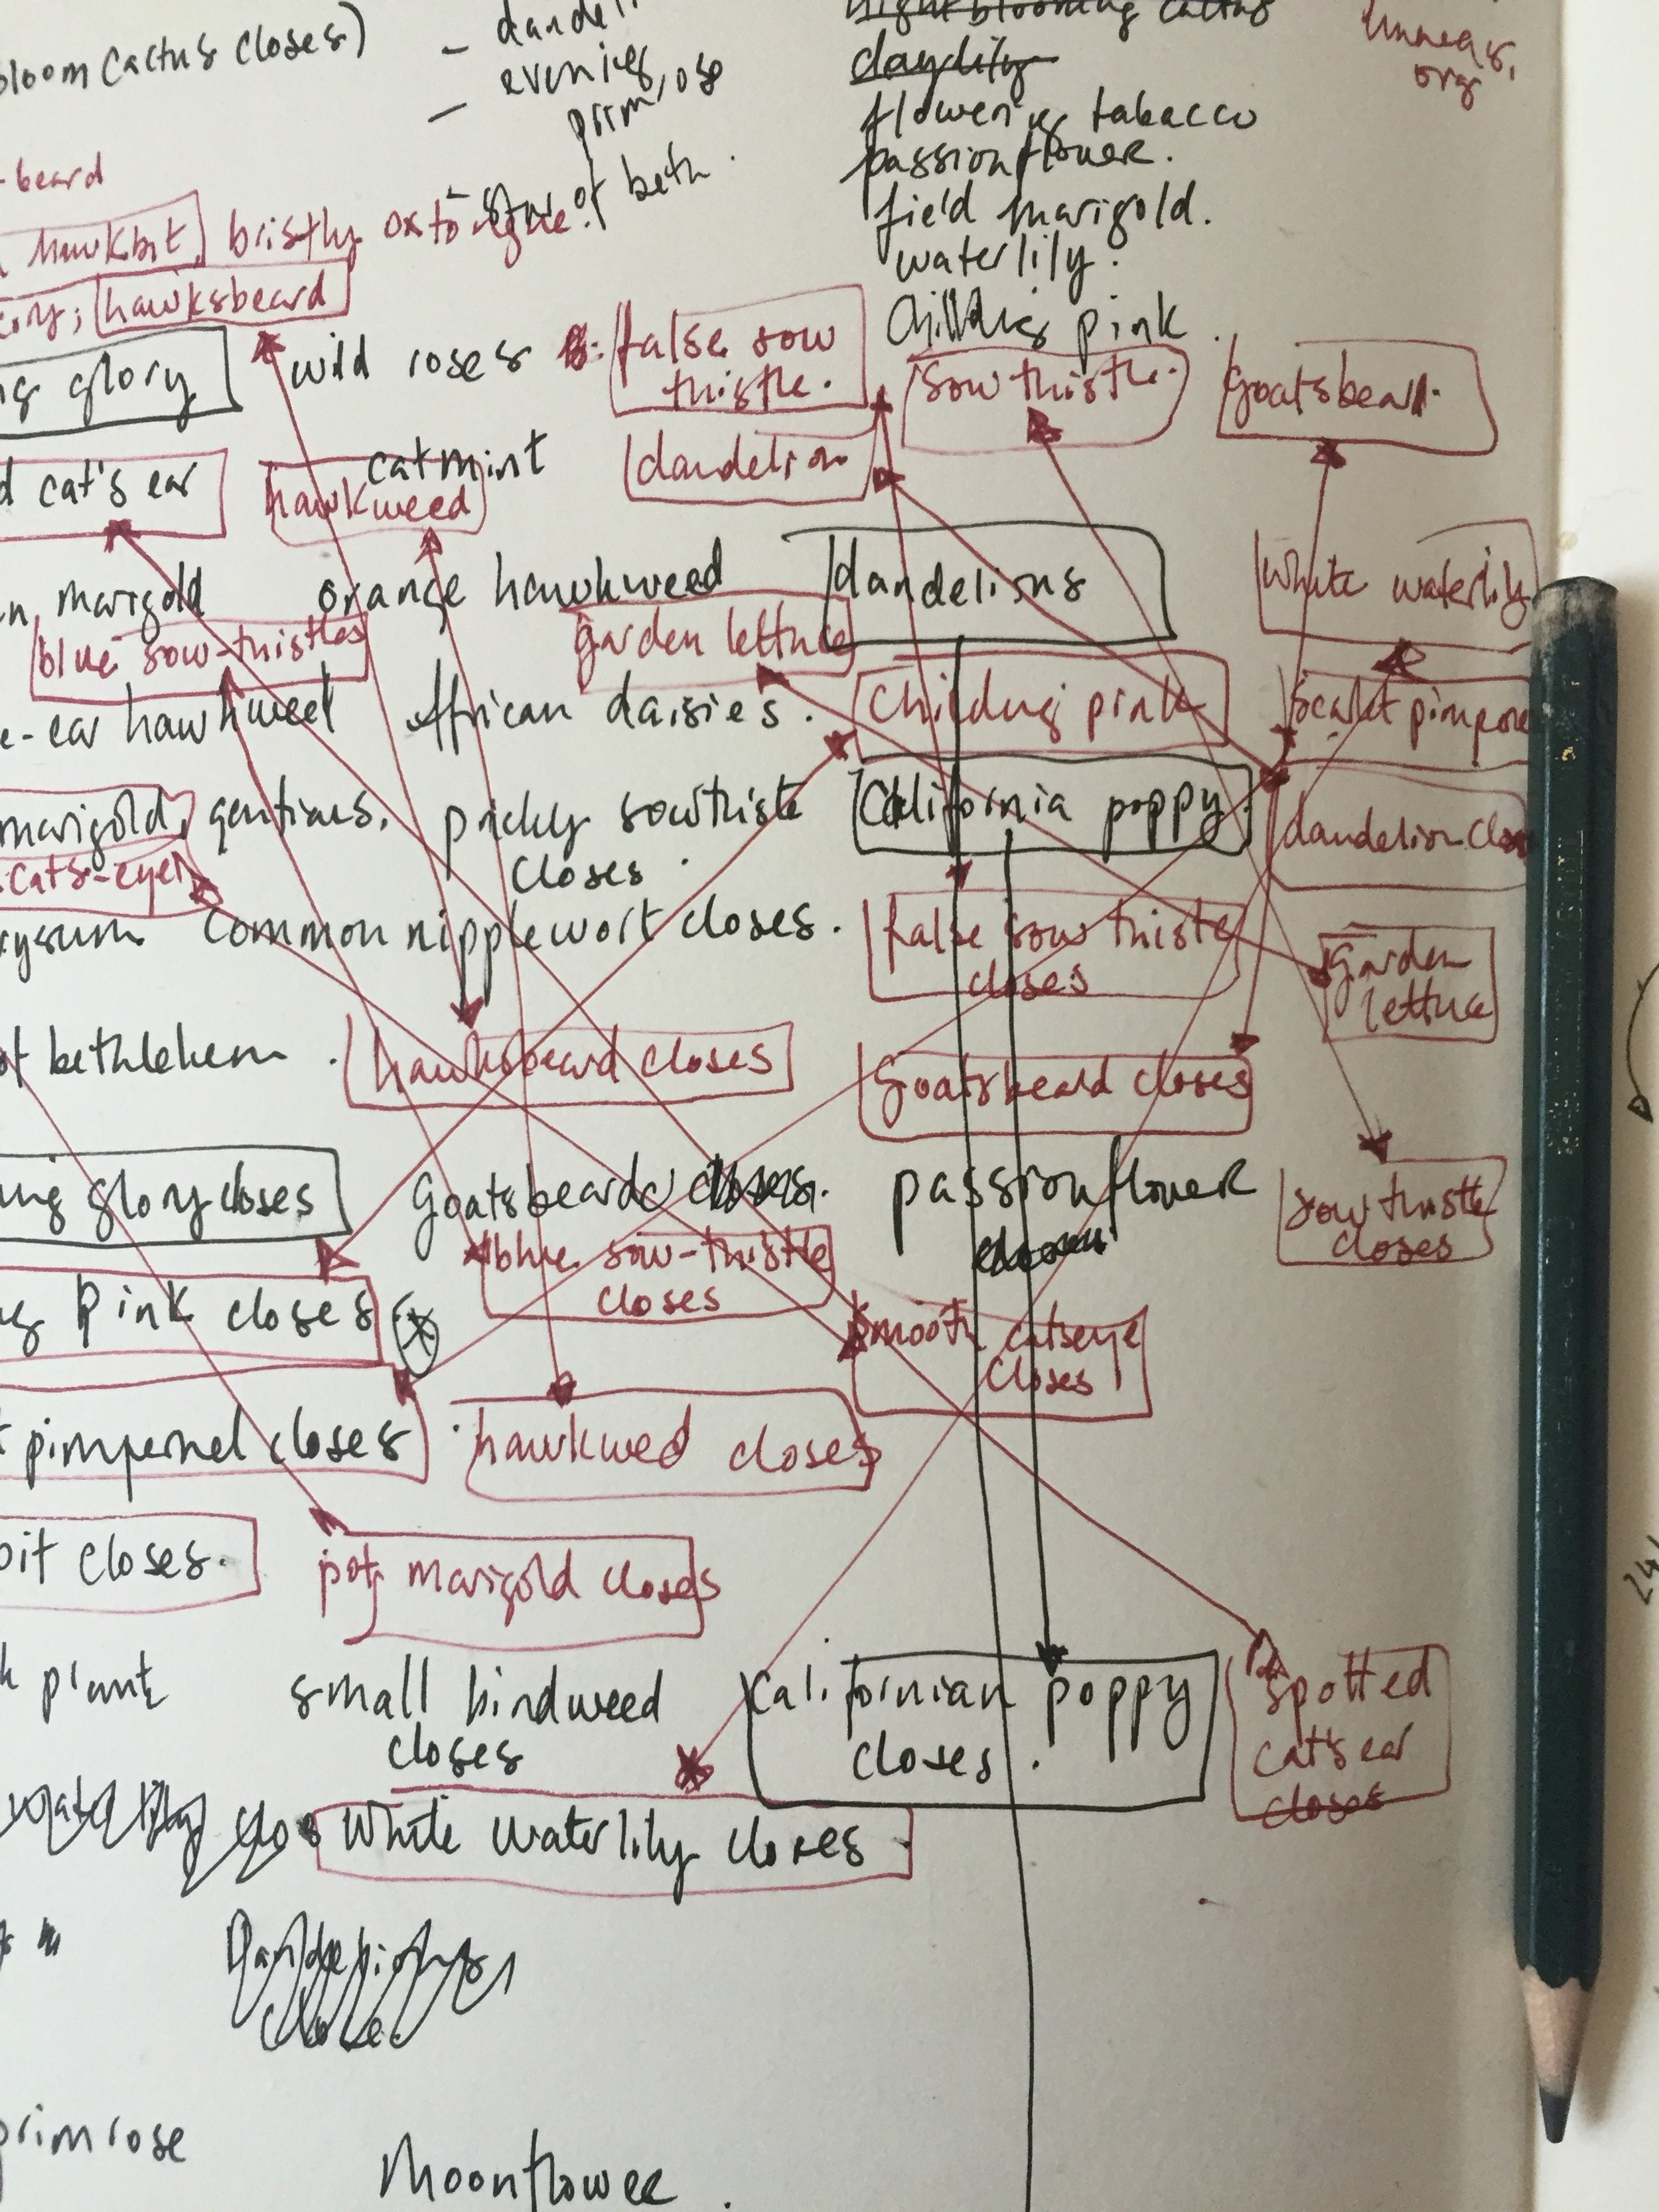 bloom cactus closes)
evening
primrose
of beth.
night blooming cactus
daylily
flowering tabacco
passionflower.
field marigold.
waterlily.
Childing pink.
linneas,
org
-beard
hawkbit, bristly oxtongue.
hawksbeard
glory
wild roses
false sow
thistle.
sow thistle.
Goatsbeard.
cat's ear
catmint
hawkweed
dandelion
marigold
orange hawkweed
dandelions
White waterlily
blue sow-thistles
garden lettuce
-ear hawkweed
African daisies.
Childing pink
marigold, gentians,
prickly sowthistle
closes.
California poppy.
cats-eye
common nipplewort closes.
false sow thistle
closes
garden
lettuce
of bethlehem.
hawksbeard closes
Goatsbeard closes
glory closes
Goatsbeard closes.
passionflower
sow thistle
closes
blue sow-thistle
closes
pink closes
smooth catseye
closes
pimpernel closes
hawkweed closes
bit closes.
pot marigold closes
plant
small bindweed
closes
Californian poppy
closes.
spotted
cat's ear
closes
White waterlily closes
primrose
Moonflower.